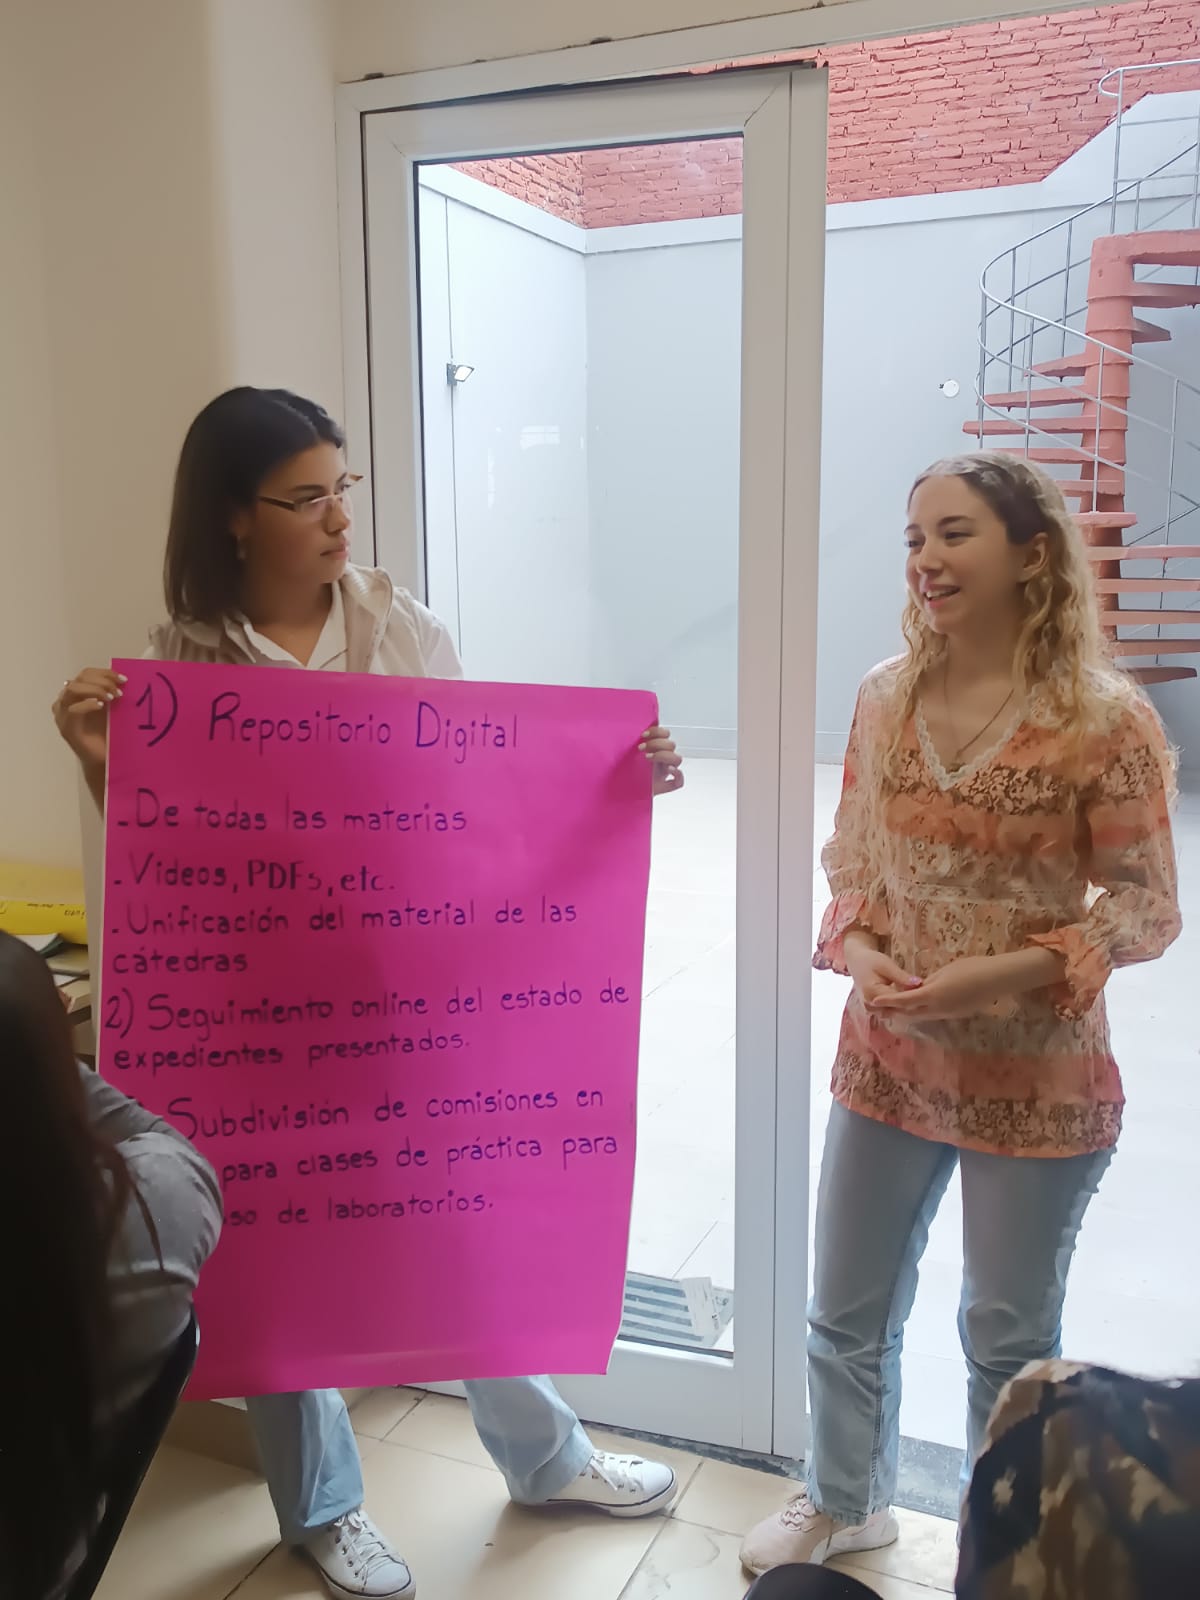 1) Repositorio Digital
- De todas las materias
- Videos, PDFs, etc.
- Unificación del material de las
cátedras
2) Seguimiento online del estado de
expedientes presentados.
Subdivisión de comisiones en
para clases de práctica para
de laboratorios.